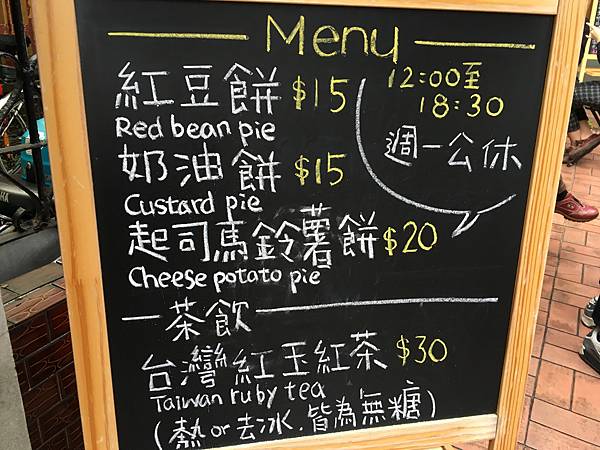 Menu
紅豆餅 $15
Red bean pie
奶油餅 $15
Custard pie
起司馬鈴薯餅 $20
Cheese potato pie
12:00至
18:30
週一公休
茶飲
台灣紅玉紅茶 $30
Taiwan ruby tea
(熱 or 去冰.皆為無糖)